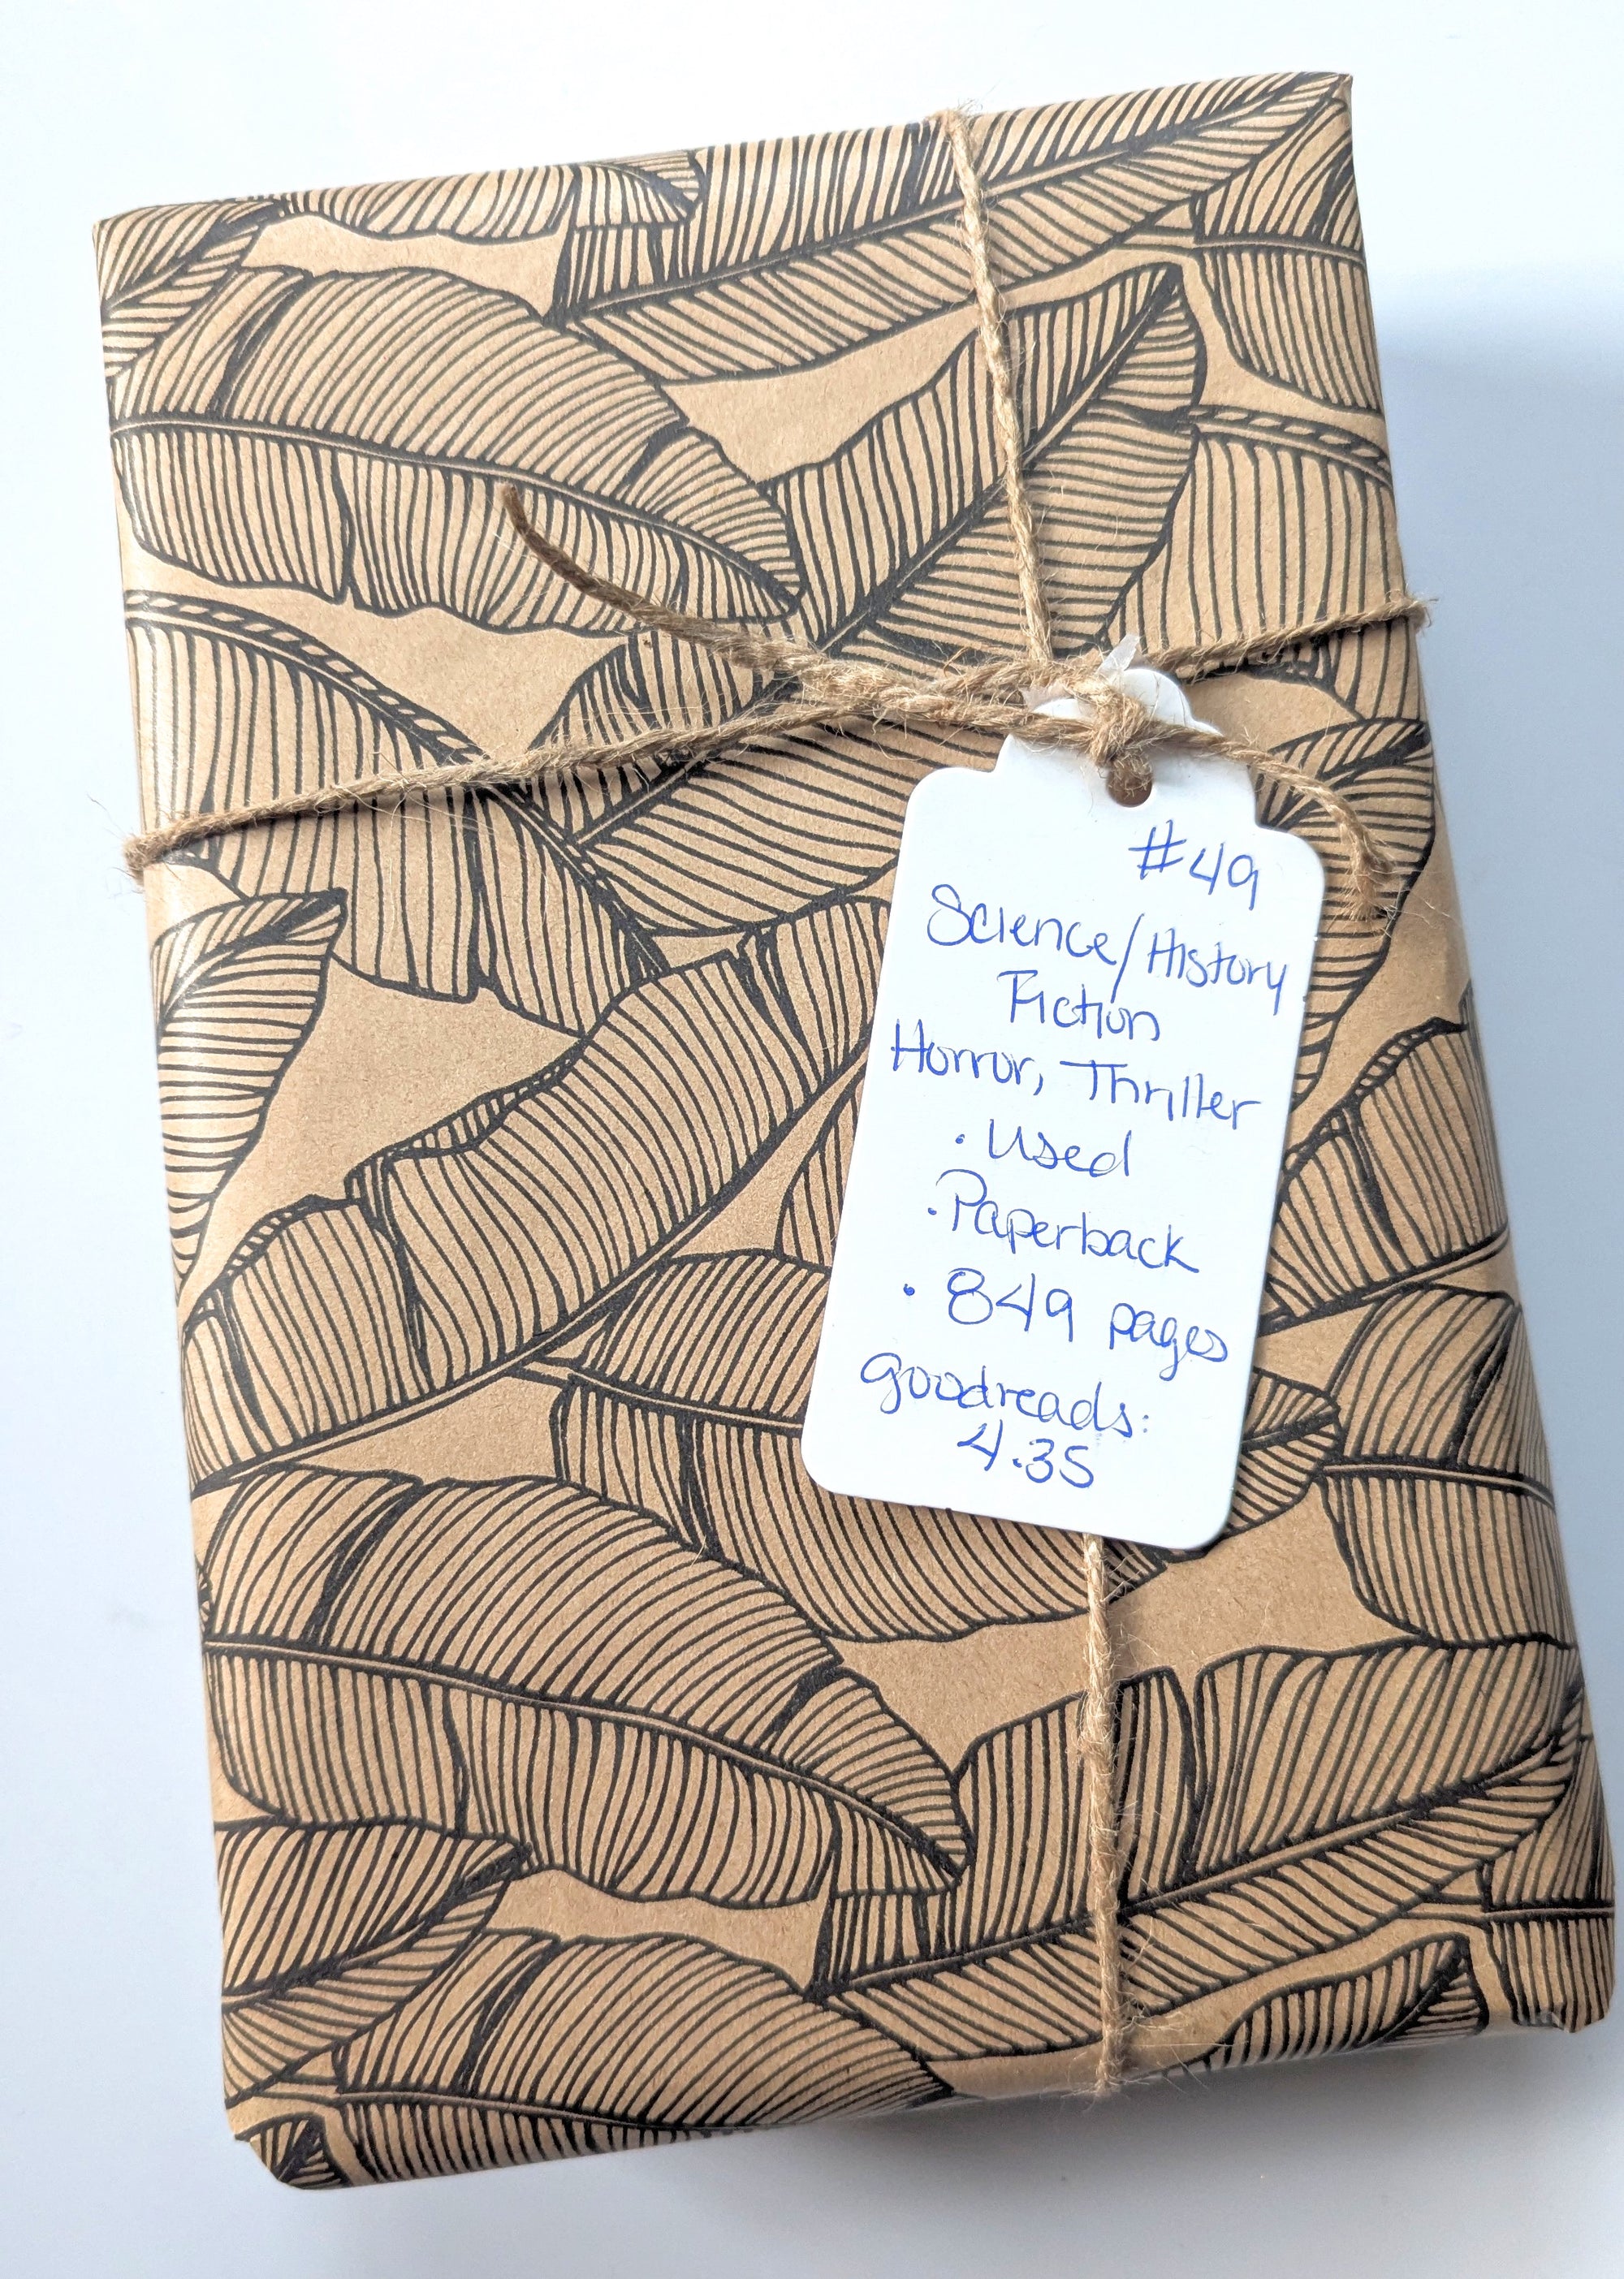 #49
Science/History
Fiction
Horror, Thriller
· Used
· Paperback
· 849 pages
goodreads:
4.35